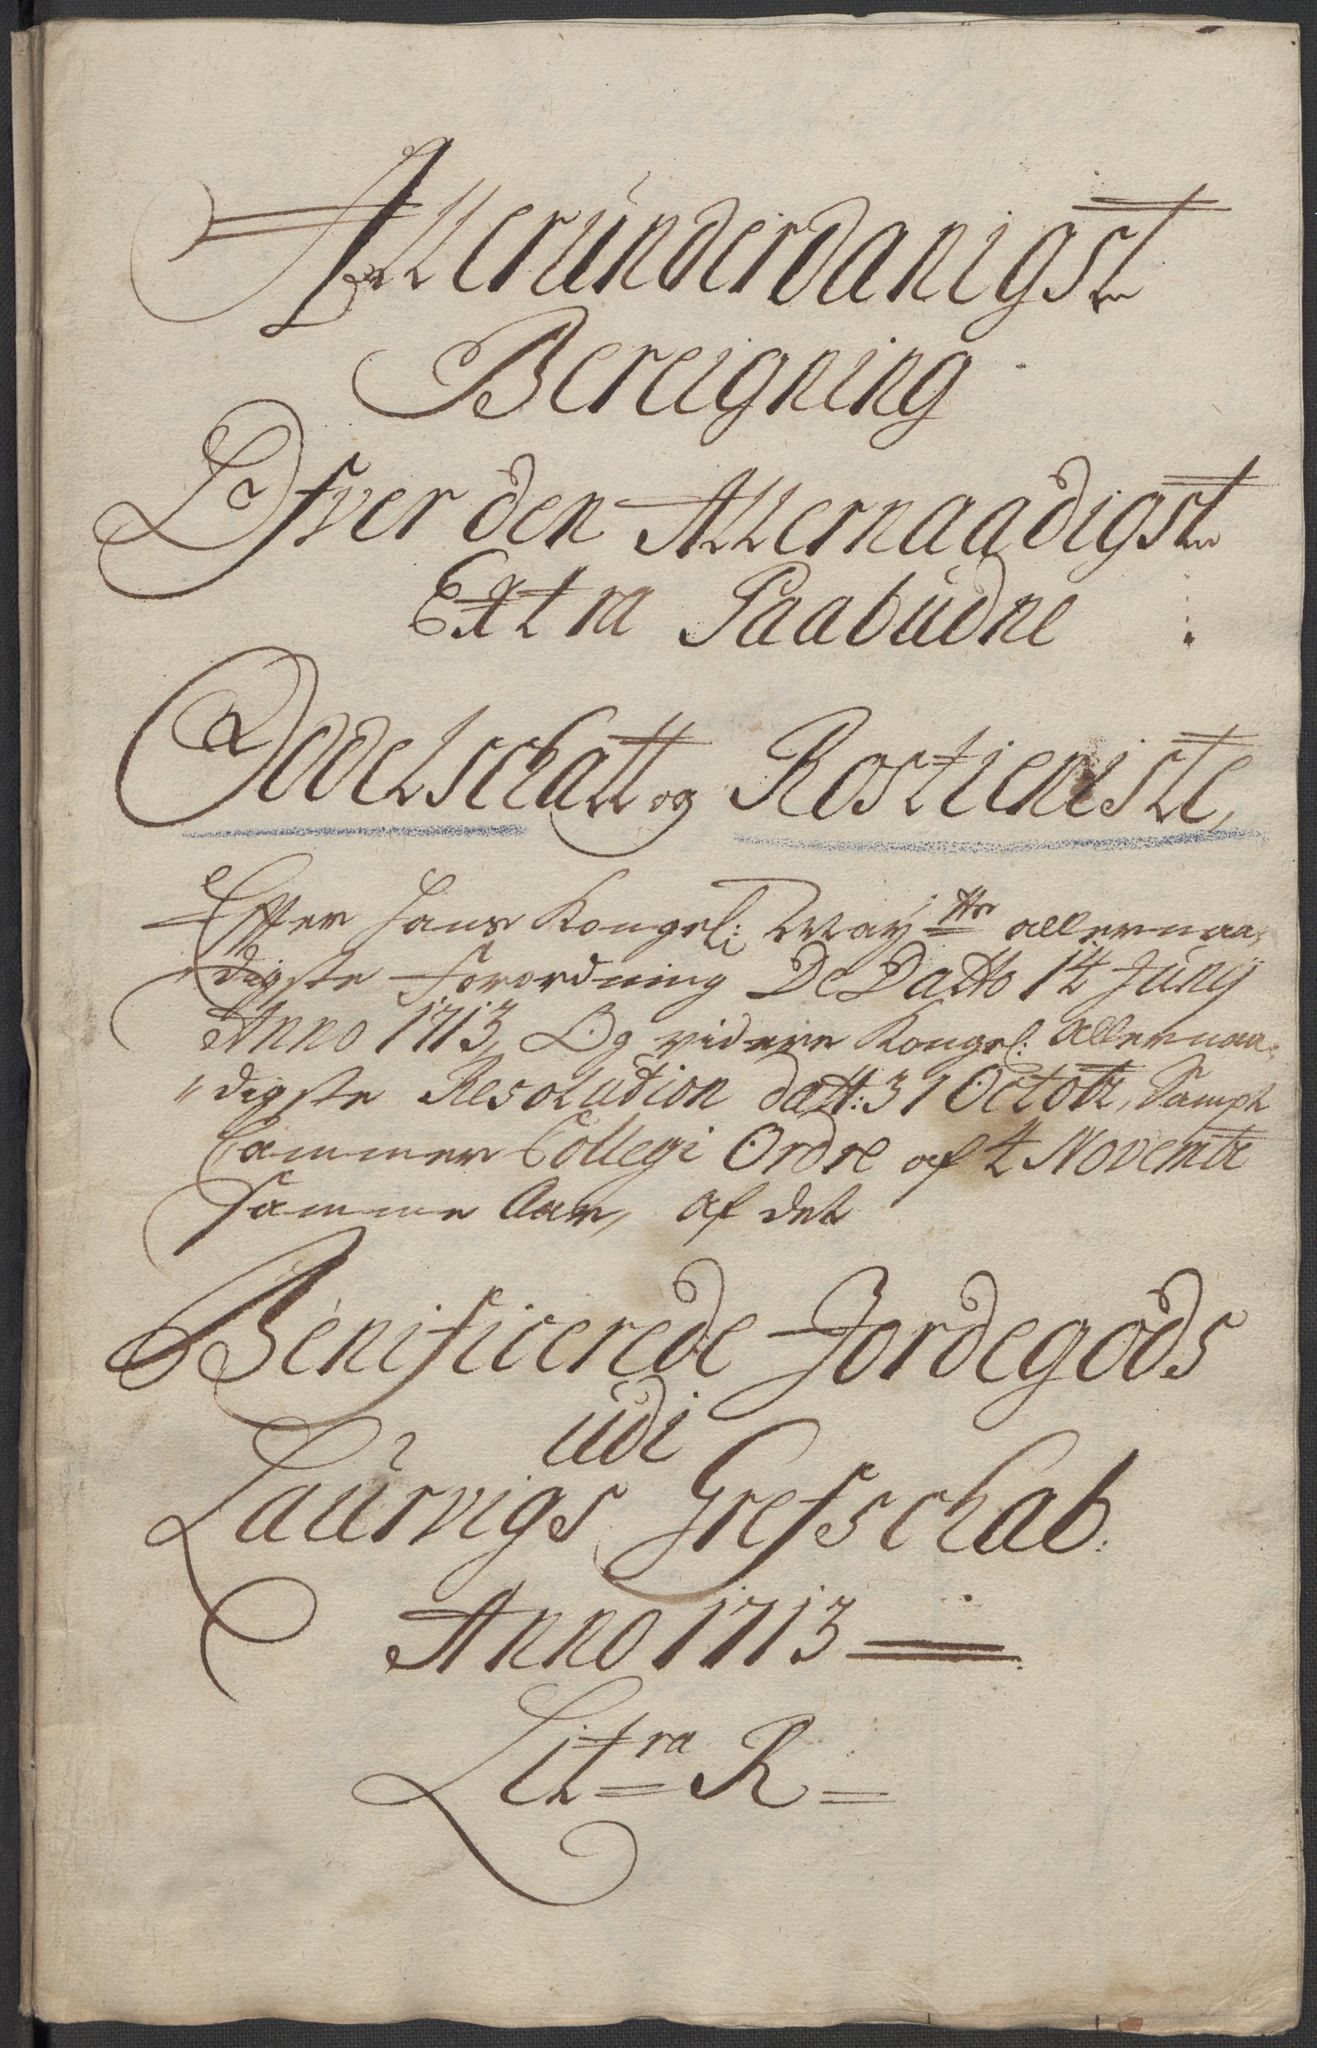 Allerunderdanigst
Bereigning
Ofver den Allernaadigst
Extra Paabudne
Oddelschatt og Rostieniste,
Effter Hans Kongel: May:tts allernaa-
digste Forordning De Datto 14 Juny
Anno 1713, Og videre Kongel: Allernaa-
digste Resolution datt: 31 Octobr, Sampt
Cammer Collegi Ordre af 4 Novembr
samme Aar, af det
Benificerede Jordegods
udi
Laurvigs Grefschab.
Anno 1713
Litra R